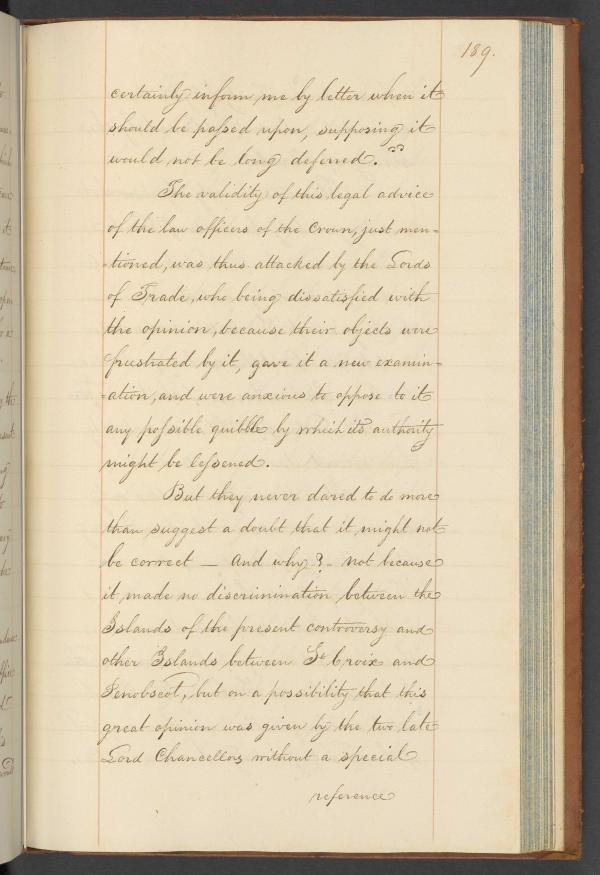 189.
certainly inform me by letter when it
should be passed upon, supposing it
would not be long deferred."
The validity of this legal advice
of the law officers of the Crown, just men-
-tioned, was thus attacked by the Lords
of Trade, who being dissatisfied with
the opinion, because their objects were
frustrated by it, gave it a new examin-
-ation, and were anxious to oppose to it
any possible quibble by which its authority
might be lessened.
But they never dared to do more
than suggest a doubt that it might not
be correct — And why? — not because
it made no discrimination between the
Islands of the present controversy and
other Islands between St Croix and
Penobscot, but on a possibility that this
great opinion was given by the two late
Lord Chancellors without a special
reference